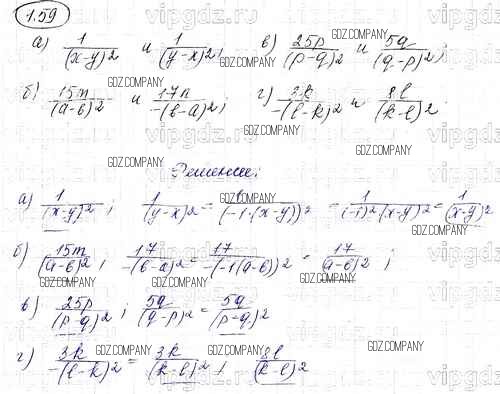 1.59
а) 1/(x-y)² и 1/(y-x)²; в) 25p/(p-q)² и 5q/(q-p)²;
б) 15m/(a-b)² и 17n/-(b-a)²; г) 3k/-(l-k)² и 8l/(k-l)².
Решение:
а) 1/(x-y)²; 1/(y-x)² = 1/(-1·(x-y))² = 1/(-1)²·(x-y)² = 1/(x-y)²
б) 15m/(a-b)²; 17/-(b-a)² = 17/-(-1(a-b))² = 17/(a-b)²;
в) 25p/(p-q)²; 5q/(q-p)² = 5q/(p-q)²
г) 3k/-(l-k)² = 3k/(k-l)²; 8l/(k-l)²
GDZ.COMPANY
GDZ.COMPANY
GDZ.COMPANY
GDZ.COMPANY
GDZ.COMPANY
GDZ.COMPANY
GDZ.COMPANY
GDZ.COMPANY
GDZ.COMPANY
GDZ.COMPANY
GDZ.COMPANY
GDZ.COMPANY
GDZ.COMPANY